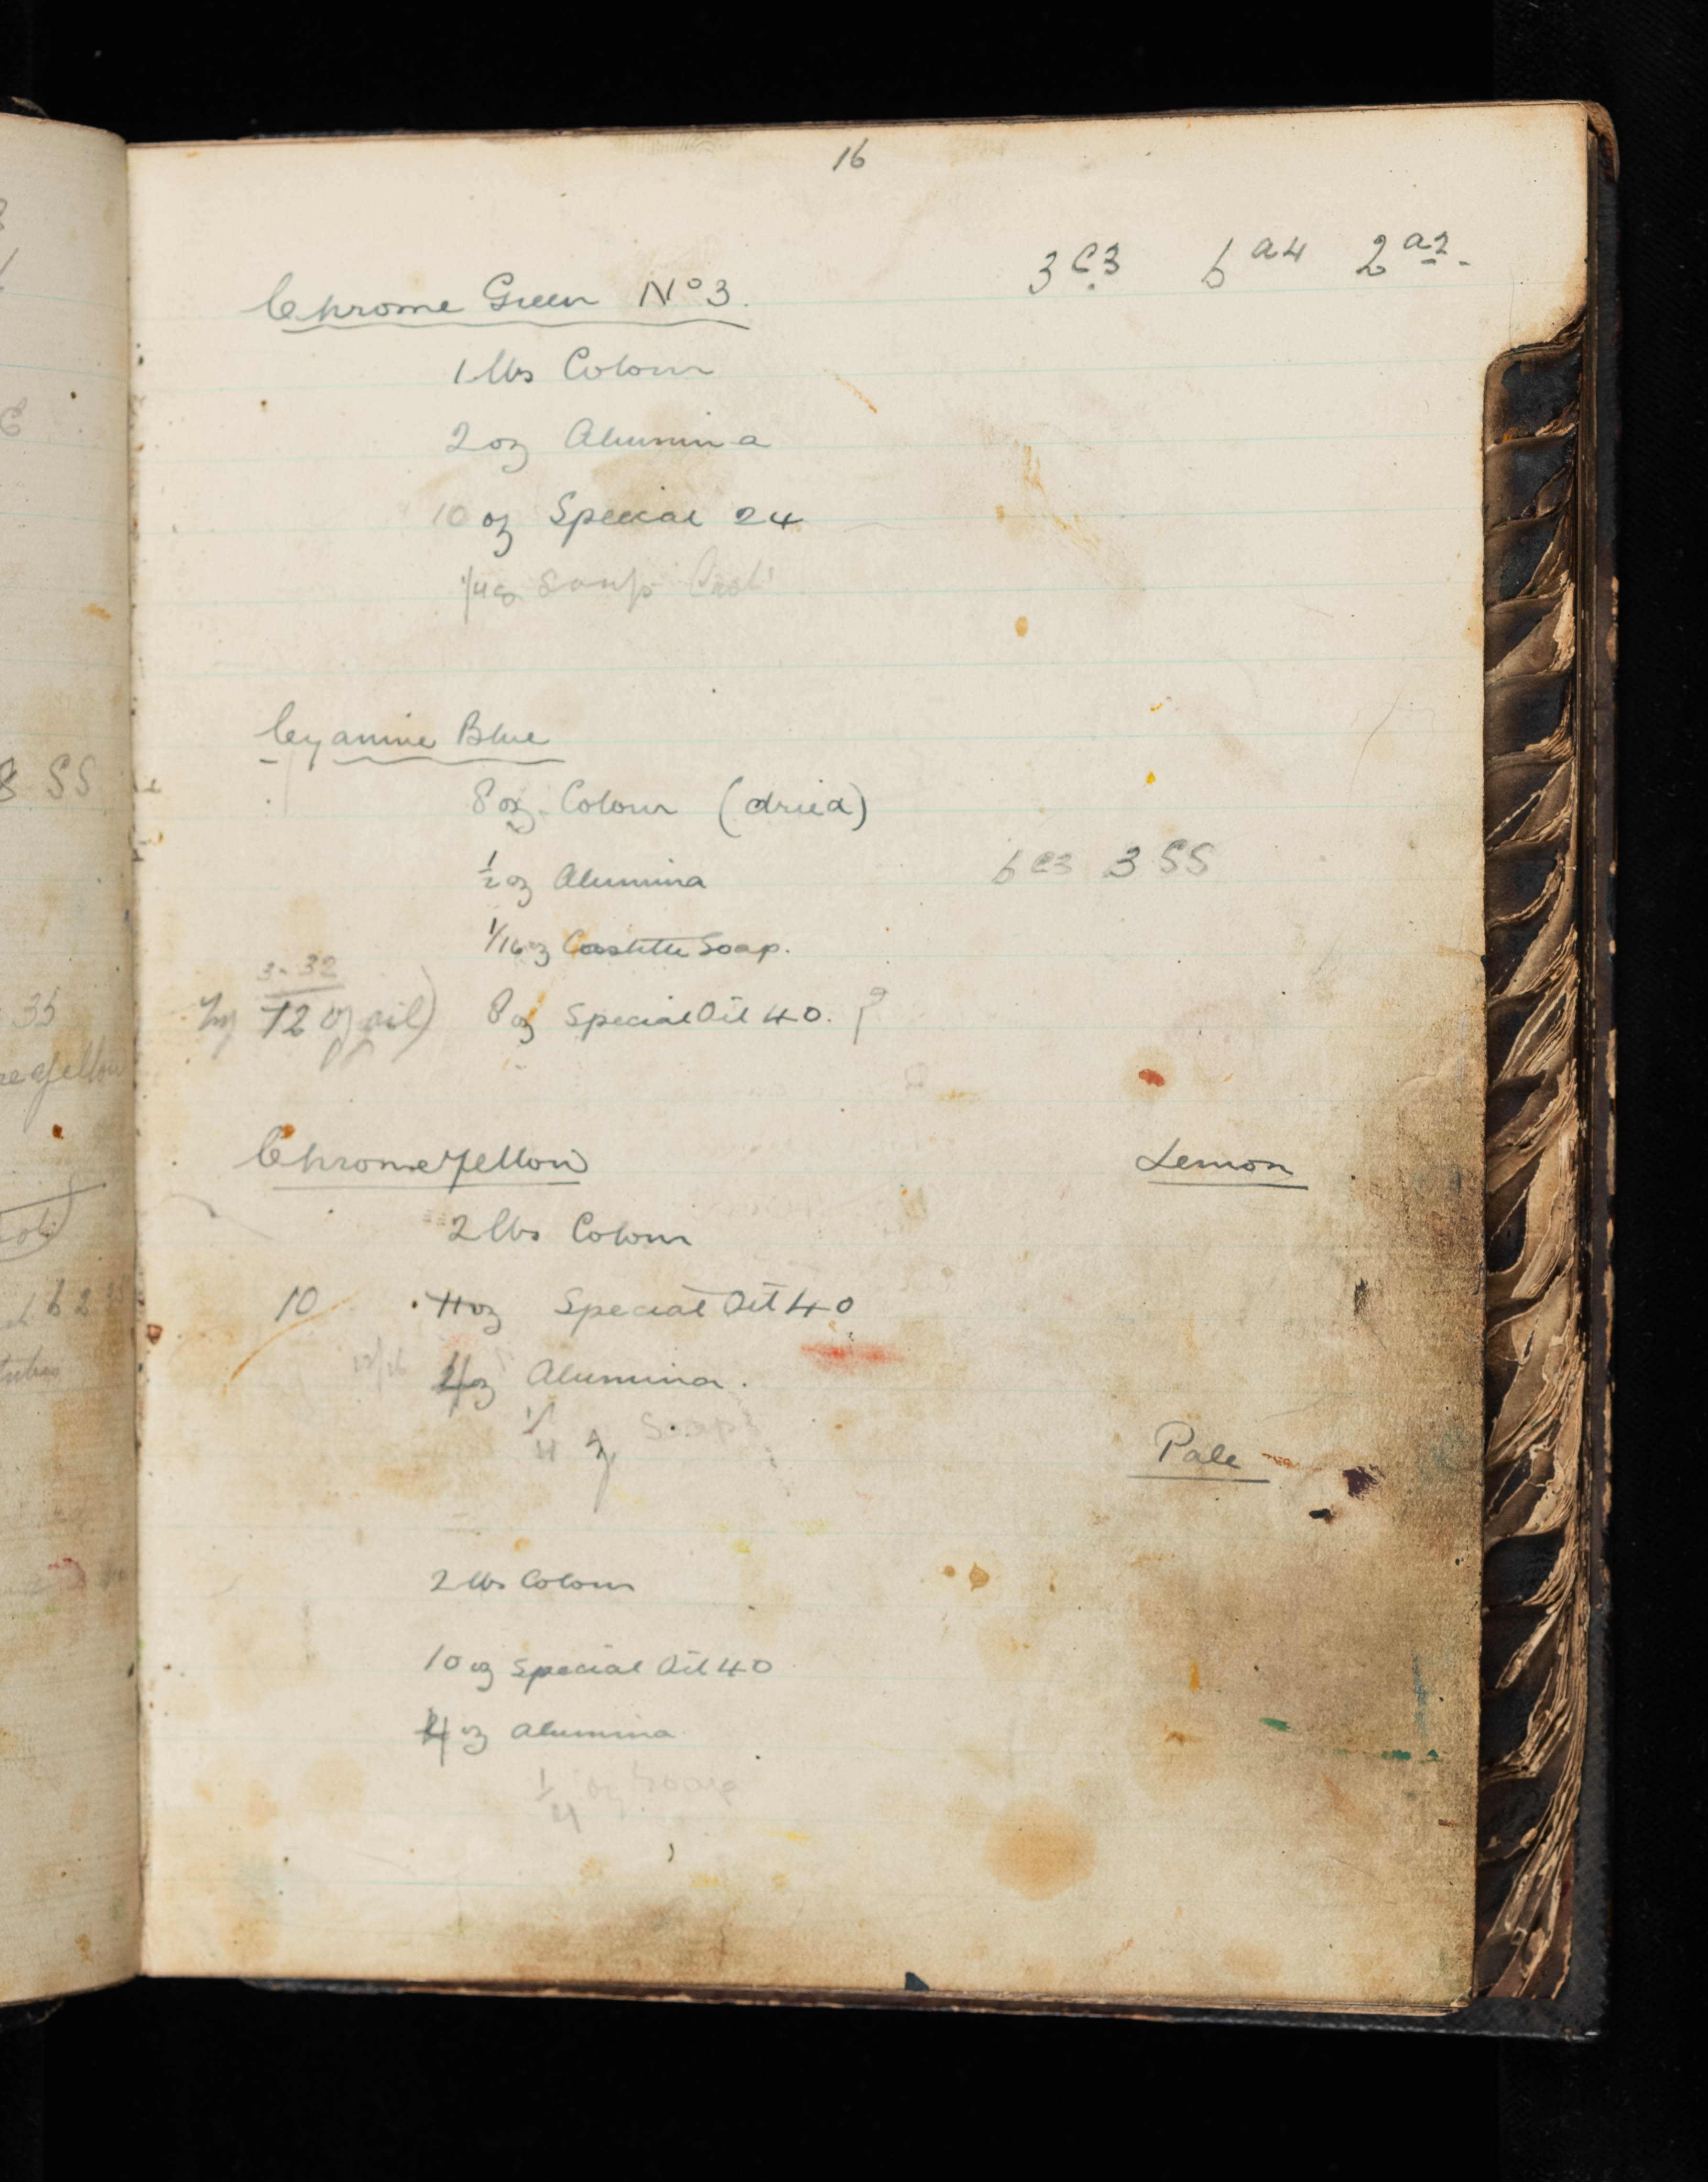 16
3 C3 6 a4 2 a2.
Chrome Green No 3.
1 lbs Colour
2 oz Alumina
10 oz Special 24
1/4 oz Soap Cast
Cyanine Blue
8 oz. Colour (dried)
½ oz Alumina 6 C3 3 SS
1/16 oz Soap.
3.32
12 oz oil) 8 oz Special Oil 40. ?
Chrome Yellow Lemon
2 lbs Colour
10 11 oz Special Oil 40
4 oz Alumina.
1/4 oz Soap
Pale
2 lbs Colour
10 oz Special Oil 40
4 oz Alumina
1/4 oz Soap
8 SS
35
Yellow